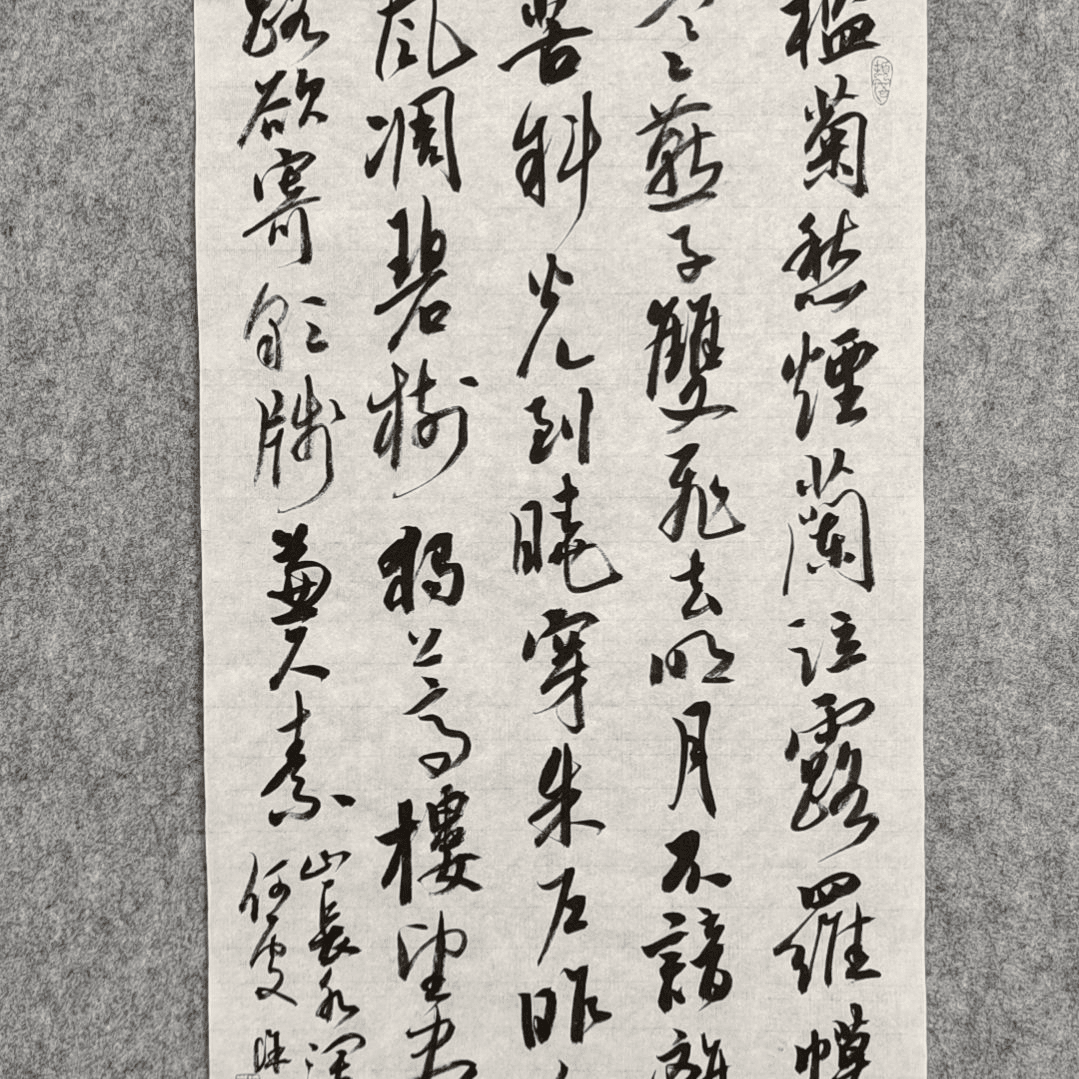 檻菊愁煙蘭泣露羅幙
寒燕子雙飛去明月不諳離
苦斜光到曉穿朱戶昨
風凋碧樹獨上高樓望盡
路欲寄彩牋兼尺素
山長水闊
何處 殊